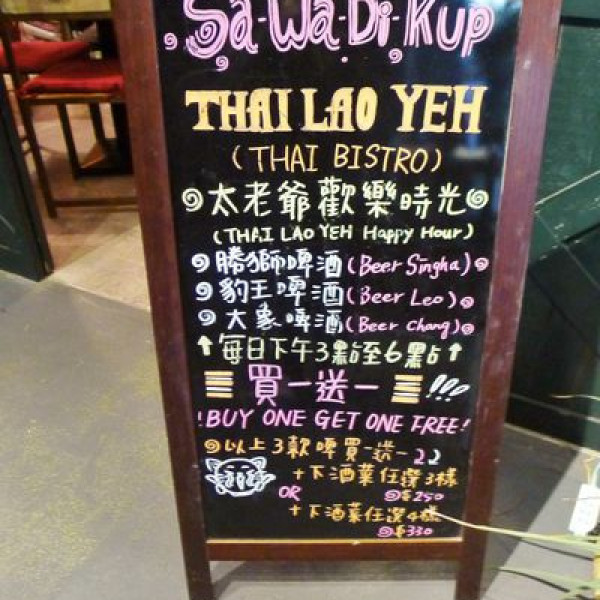 Sa-Wa-Di-Kup
THAI LAO YEH
(THAI BISTRO)
太老爺歡樂時光
(THAI LAO YEH Happy Hour)
勝獅啤酒(Beer Singha)
豹王啤酒(Beer Leo)
大象啤酒(Beer Chang)
↑每日下午3點至6點↑
買一送一!!!
!BUY ONE GET ONE FREE!
以上3款啤買一送一22
+下酒菜任選3樣
OR $250
+下酒菜任選4樣
$330